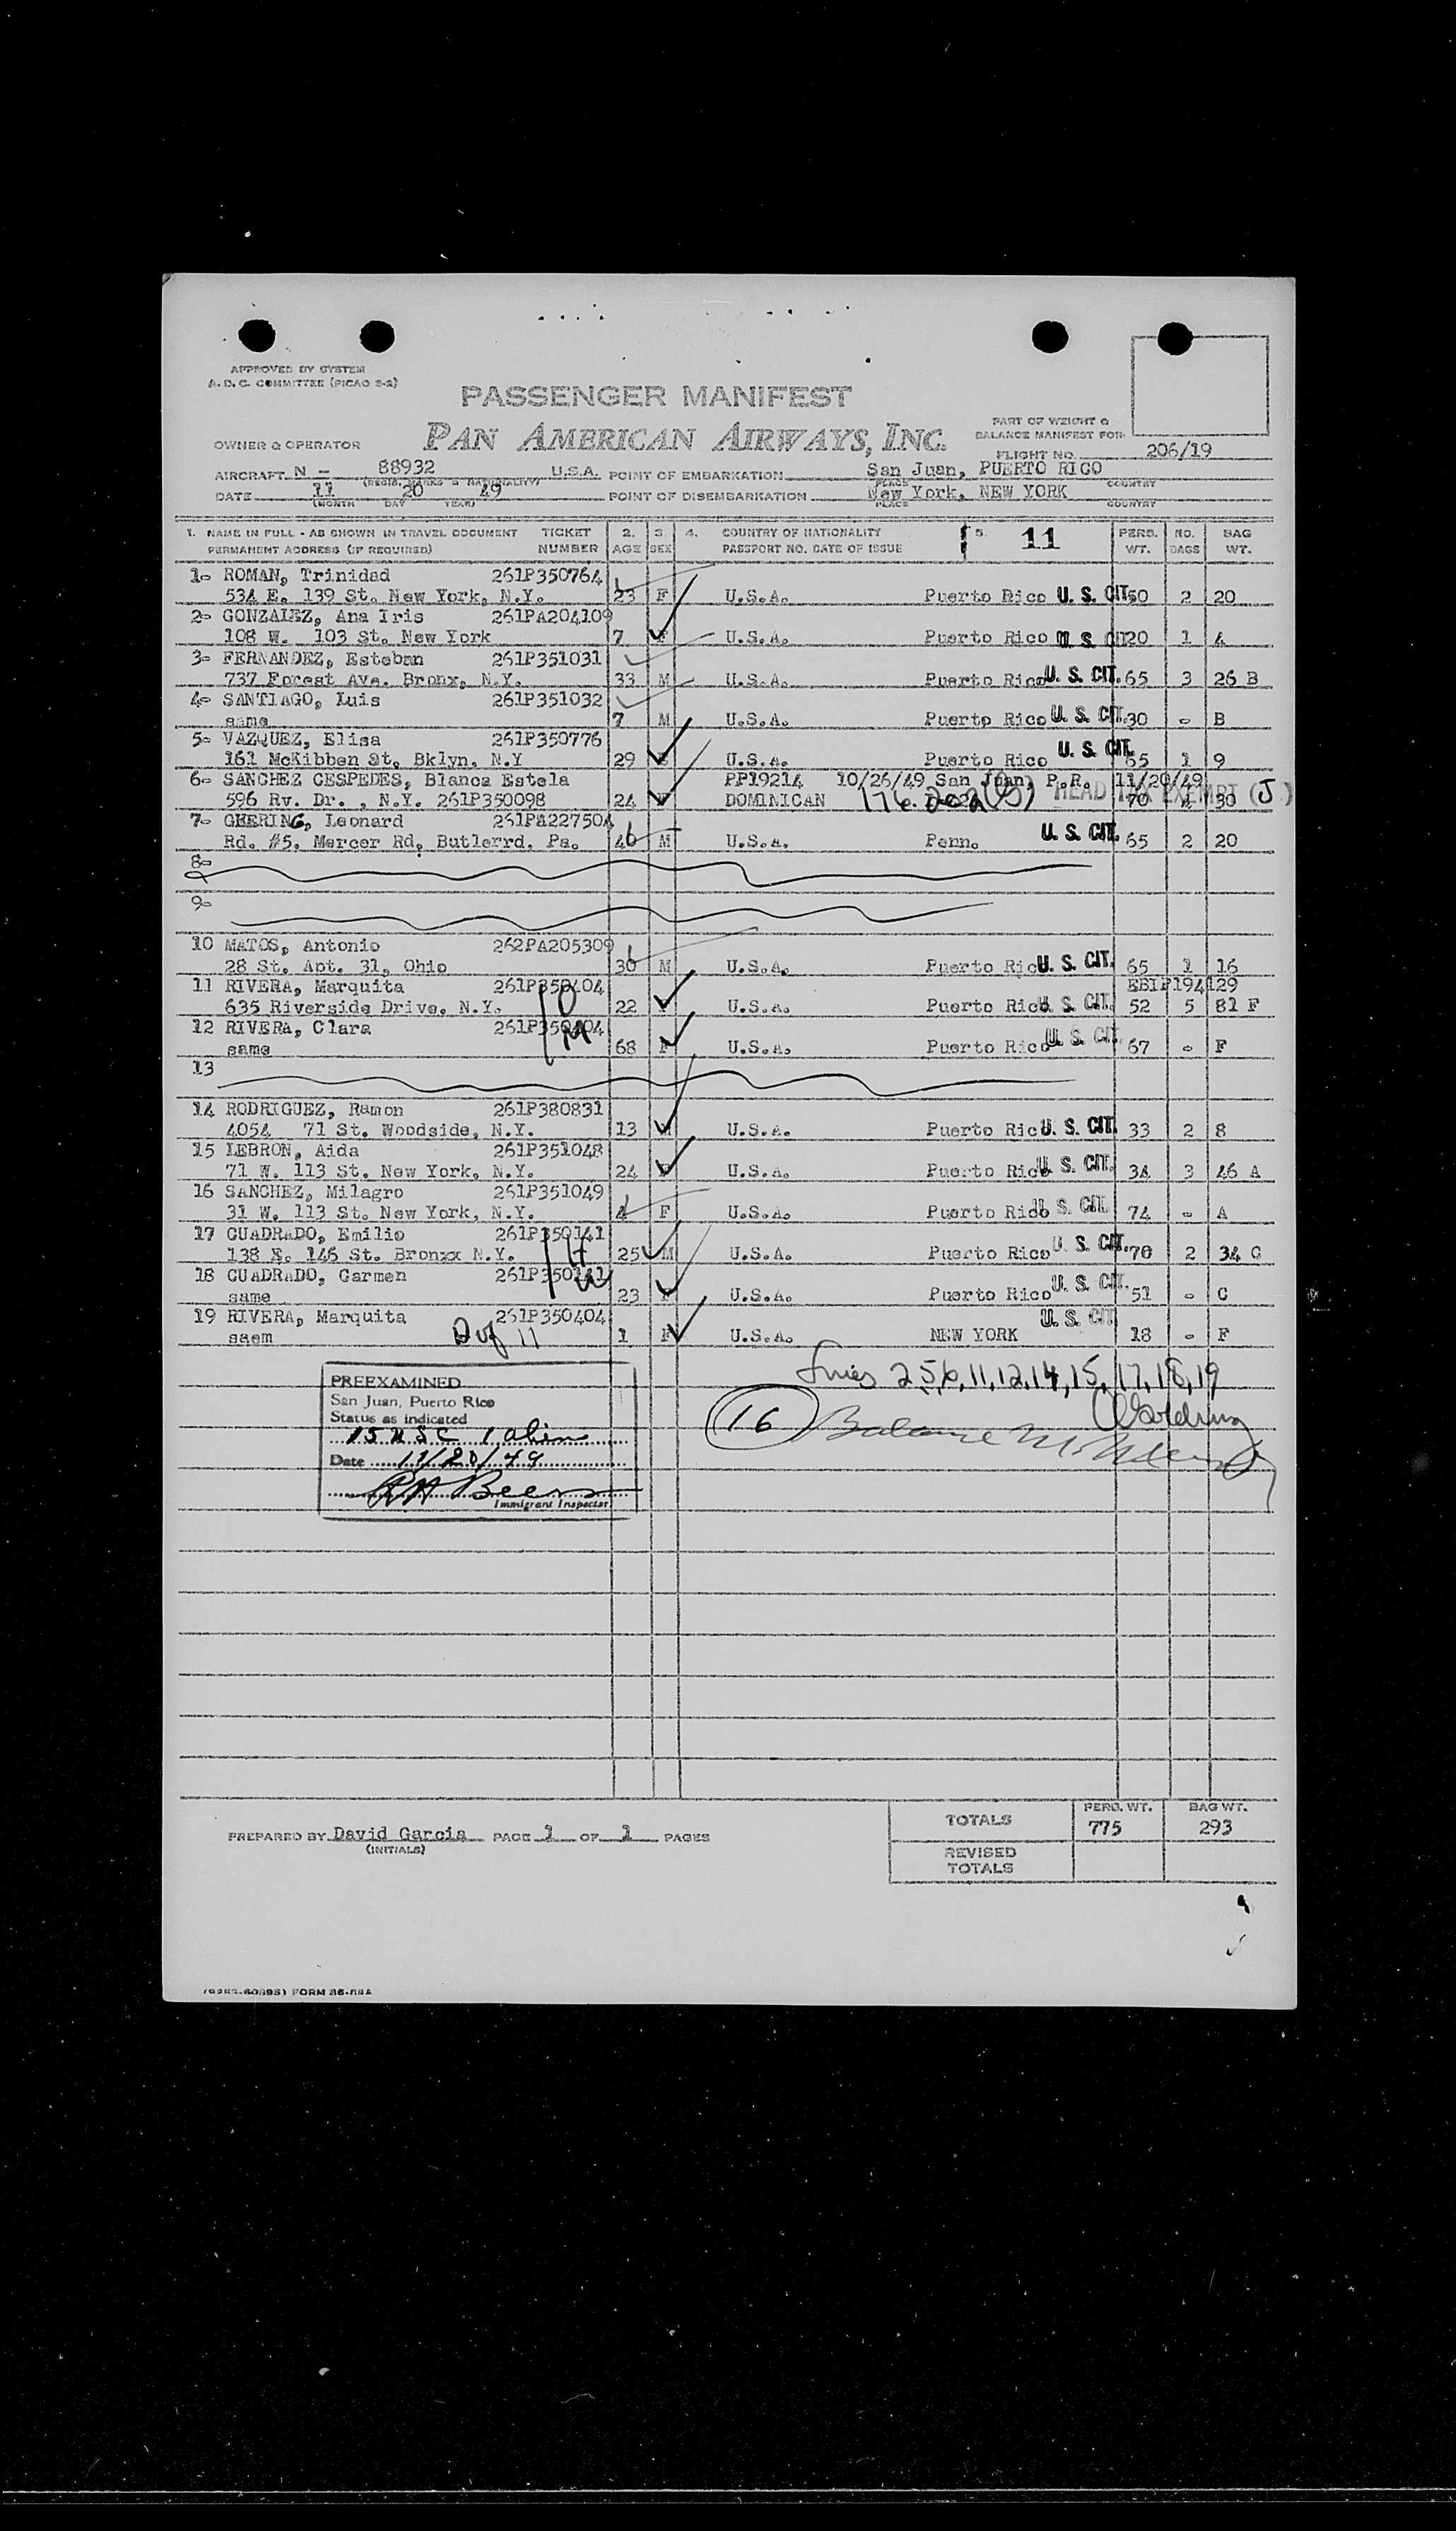 APPROVED BY SYSTEM
A. D. C. COMMITTEE (PICAO S-2)
PASSENGER MANIFEST
PAN AMERICAN AIRWAYS, INC.
OWNER & OPERATOR
PART OF WEIGHT &
BALANCE MANIFEST FOR
FLIGHT NO. 206/19
AIRCRAFT N - 88932 U.S.A. POINT OF EMBARKATION San Juan, PUERTO RICO
(REGIS. MARKS & NATIONALITY) PLACE COUNTRY
DATE 11 20 49 POINT OF DISEMBARKATION New York, NEW YORK
(MONTH DAY YEAR) PLACE COUNTRY
1. NAME IN FULL - AS SHOWN IN TRAVEL DOCUMENT TICKET 2. 3. 4. COUNTRY OF NATIONALITY 5. 11 PERS. NO. BAG
PERMANENT ADDRESS (IF REQUIRED) NUMBER AGE SEX PASSPORT NO. DATE OF ISSUE WT. BAGS WT.
1- ROMAN, Trinidad 261P350764
534 E. 139 St. New York, N.Y. 23 F U.S.A. Puerto Rico U. S. CIT. 50 2 20
2- GONZALEZ, Ana Iris 261PA204109
108 W. 103 St. New York 7 F U.S.A. Puerto Rico U. S. CIT. 20 1 4
3- FERNANDEZ, Esteban 261P351031
737 Forest Ave. Bronx, N.Y. 33 M U.S.A. Puerto Rico U. S. CIT. 65 3 26 B
4- SANTIAGO, Luis 261P351032
same 7 M U.S.A. Puerto Rico U. S. CIT. 30 - B
5- VAZQUEZ, Elisa 261P350776
161 McKibben St. Bklyn. N.Y 29 U.S.A. Puerto Rico U. S. CIT. 65 1 9
6- SANCHEZ CESPEDES, Blanca Estela PP19214 10/26/49 San Juan, P.R. 11/20/49
596 Rv. Dr. , N.Y. 261P350098 24 F DOMINICAN HEAD TAX EXEMPT (J.) 70 30
7- GHERING, Leonard 261PA227504
Rd. #5, Mercer Rd, Butlerrd, Pa. 46 M U.S.A. Penn. U. S. CIT. 65 2 20
8-
9-
10 MATOS, Antonio 262PA205309
28 St. Apt. 31, Ohio 30 M U.S.A. Puerto Rico U. S. CIT. 65 1 16
11 RIVERA, Marquita 261P350404 EBIP194129
635 Riverside Drive, N.Y. 22 F U.S.A. Puerto Rico U. S. CIT. 52 5 81 F
12 RIVERA, Clara 261P350404
same 68 F U.S.A. Puerto Rico U. S. CIT. 67 - F
13
14 RODRIGUEZ, Ramon 261P380831
4054 71 St. Woodside, N.Y. 13 M U.S.A. Puerto Rico U. S. CIT. 33 2 8
15 LEBRON, Aida 261P351048
71 W. 113 St. New York, N.Y. 24 F U.S.A. Puerto Rico U. S. CIT. 34 3 46 A
16 SANCHEZ, Milagro 261P351049
31 W. 113 St. New York, N.Y. 4 F U.S.A. Puerto Rido U. S. CIT. 74 - A
17 CUADRADO, Emilio 261P350141
138 E. 146 St. Bronxx N.Y. H 25 M U.S.A. Puerto Rico U. S. CIT. 70 2 34 C
18 CUADRADO, Carmen 261P350141
same W 23 F U.S.A. Puerto Rico U. S. CIT. 51 - C
19 RIVERA, Marquita 261P350404 U. S. CIT
saem 11 1 F U.S.A. NEW YORK 18 - F
Lines 2,5,6,11,12,14,15,17,18,19
16 Balance
PREEXAMINED
San Juan, Puerto Rico
Status as indicated
15 USC 1 Alien
Date 11/20/49
RH Beers
Immigrant Inspector
PREPARED BY David Garcia PAGE 1 OF 1 PAGES
(INITIALS)
TOTALS PERS. WT. 775 BAG WT. 293
REVISED
TOTALS
FORM 86-88A